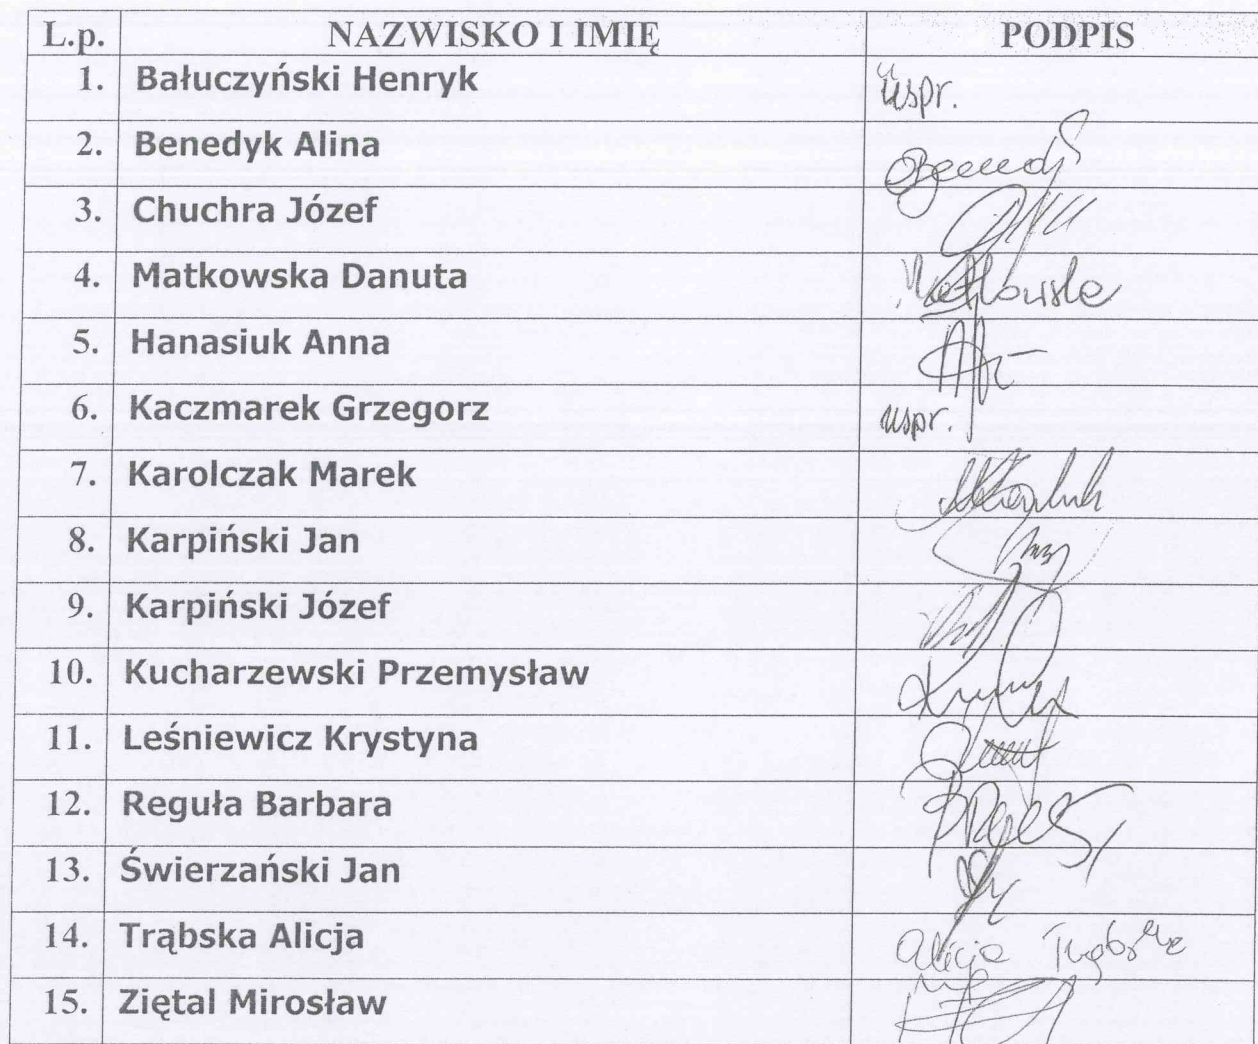 L.p. NAZWISKO I IMIĘ PODPIS
1. Bałuczyński Henryk uspr.
2. Benedyk Alina
3. Chuchra Józef
4. Matkowska Danuta
5. Hanasiuk Anna
6. Kaczmarek Grzegorz uspr.
7. Karolczak Marek
8. Karpiński Jan
9. Karpiński Józef
10. Kucharzewski Przemysław
11. Leśniewicz Krystyna
12. Reguła Barbara
13. Świerzański Jan
14. Trąbska Alicja Alicja Trąbska
15. Ziętal Mirosław